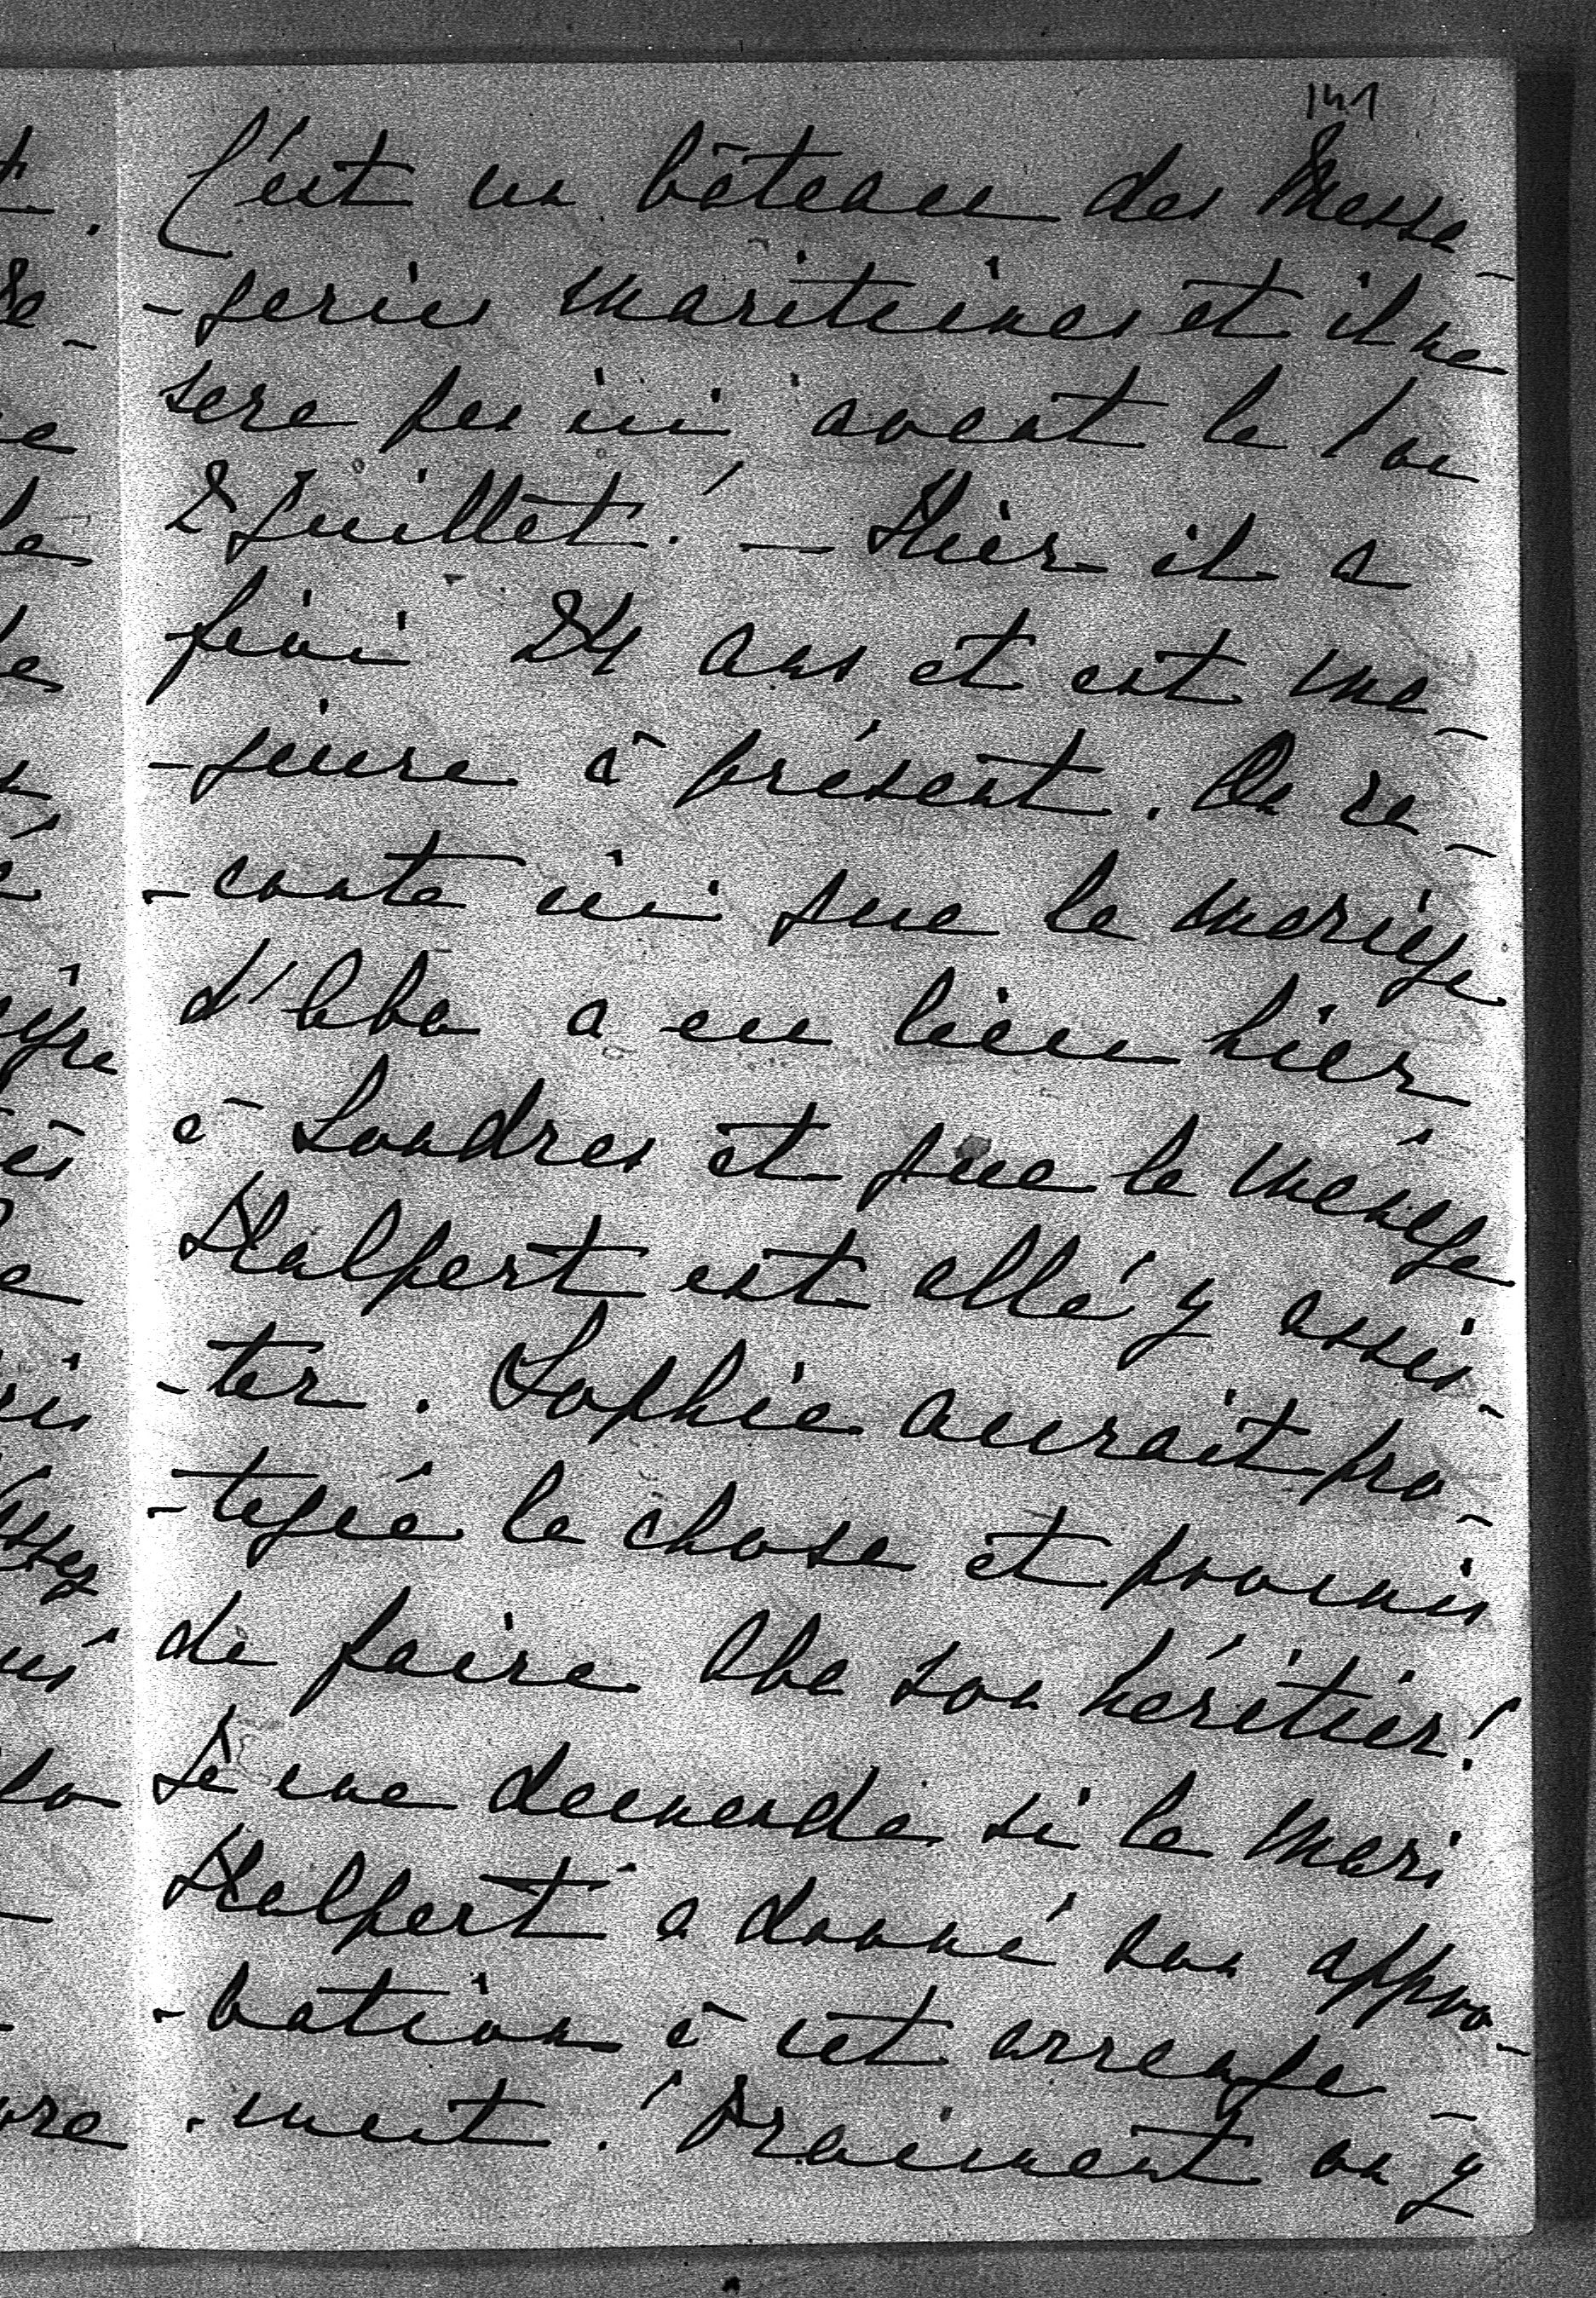 141
C'est un bâteau des Messa-
-geries maritimes et il ne
sera pas ici avant le 1 ou
2 Juillet! — Hier il a
fini 24 ans et est ma-
-jeure à présent. On ra-
-conte ici que le mariage
d'Aba a eu lieu hier
à Londres et que le ménage
Halpert est allé y assis-
-ter. Sophie aurait pro-
-tegée la chose et promis
de faire Aba son héritier!
Je me demande si le mari
Halpert a donné son appro-
-bation à cet arrange-
-ment! Vraiment on y